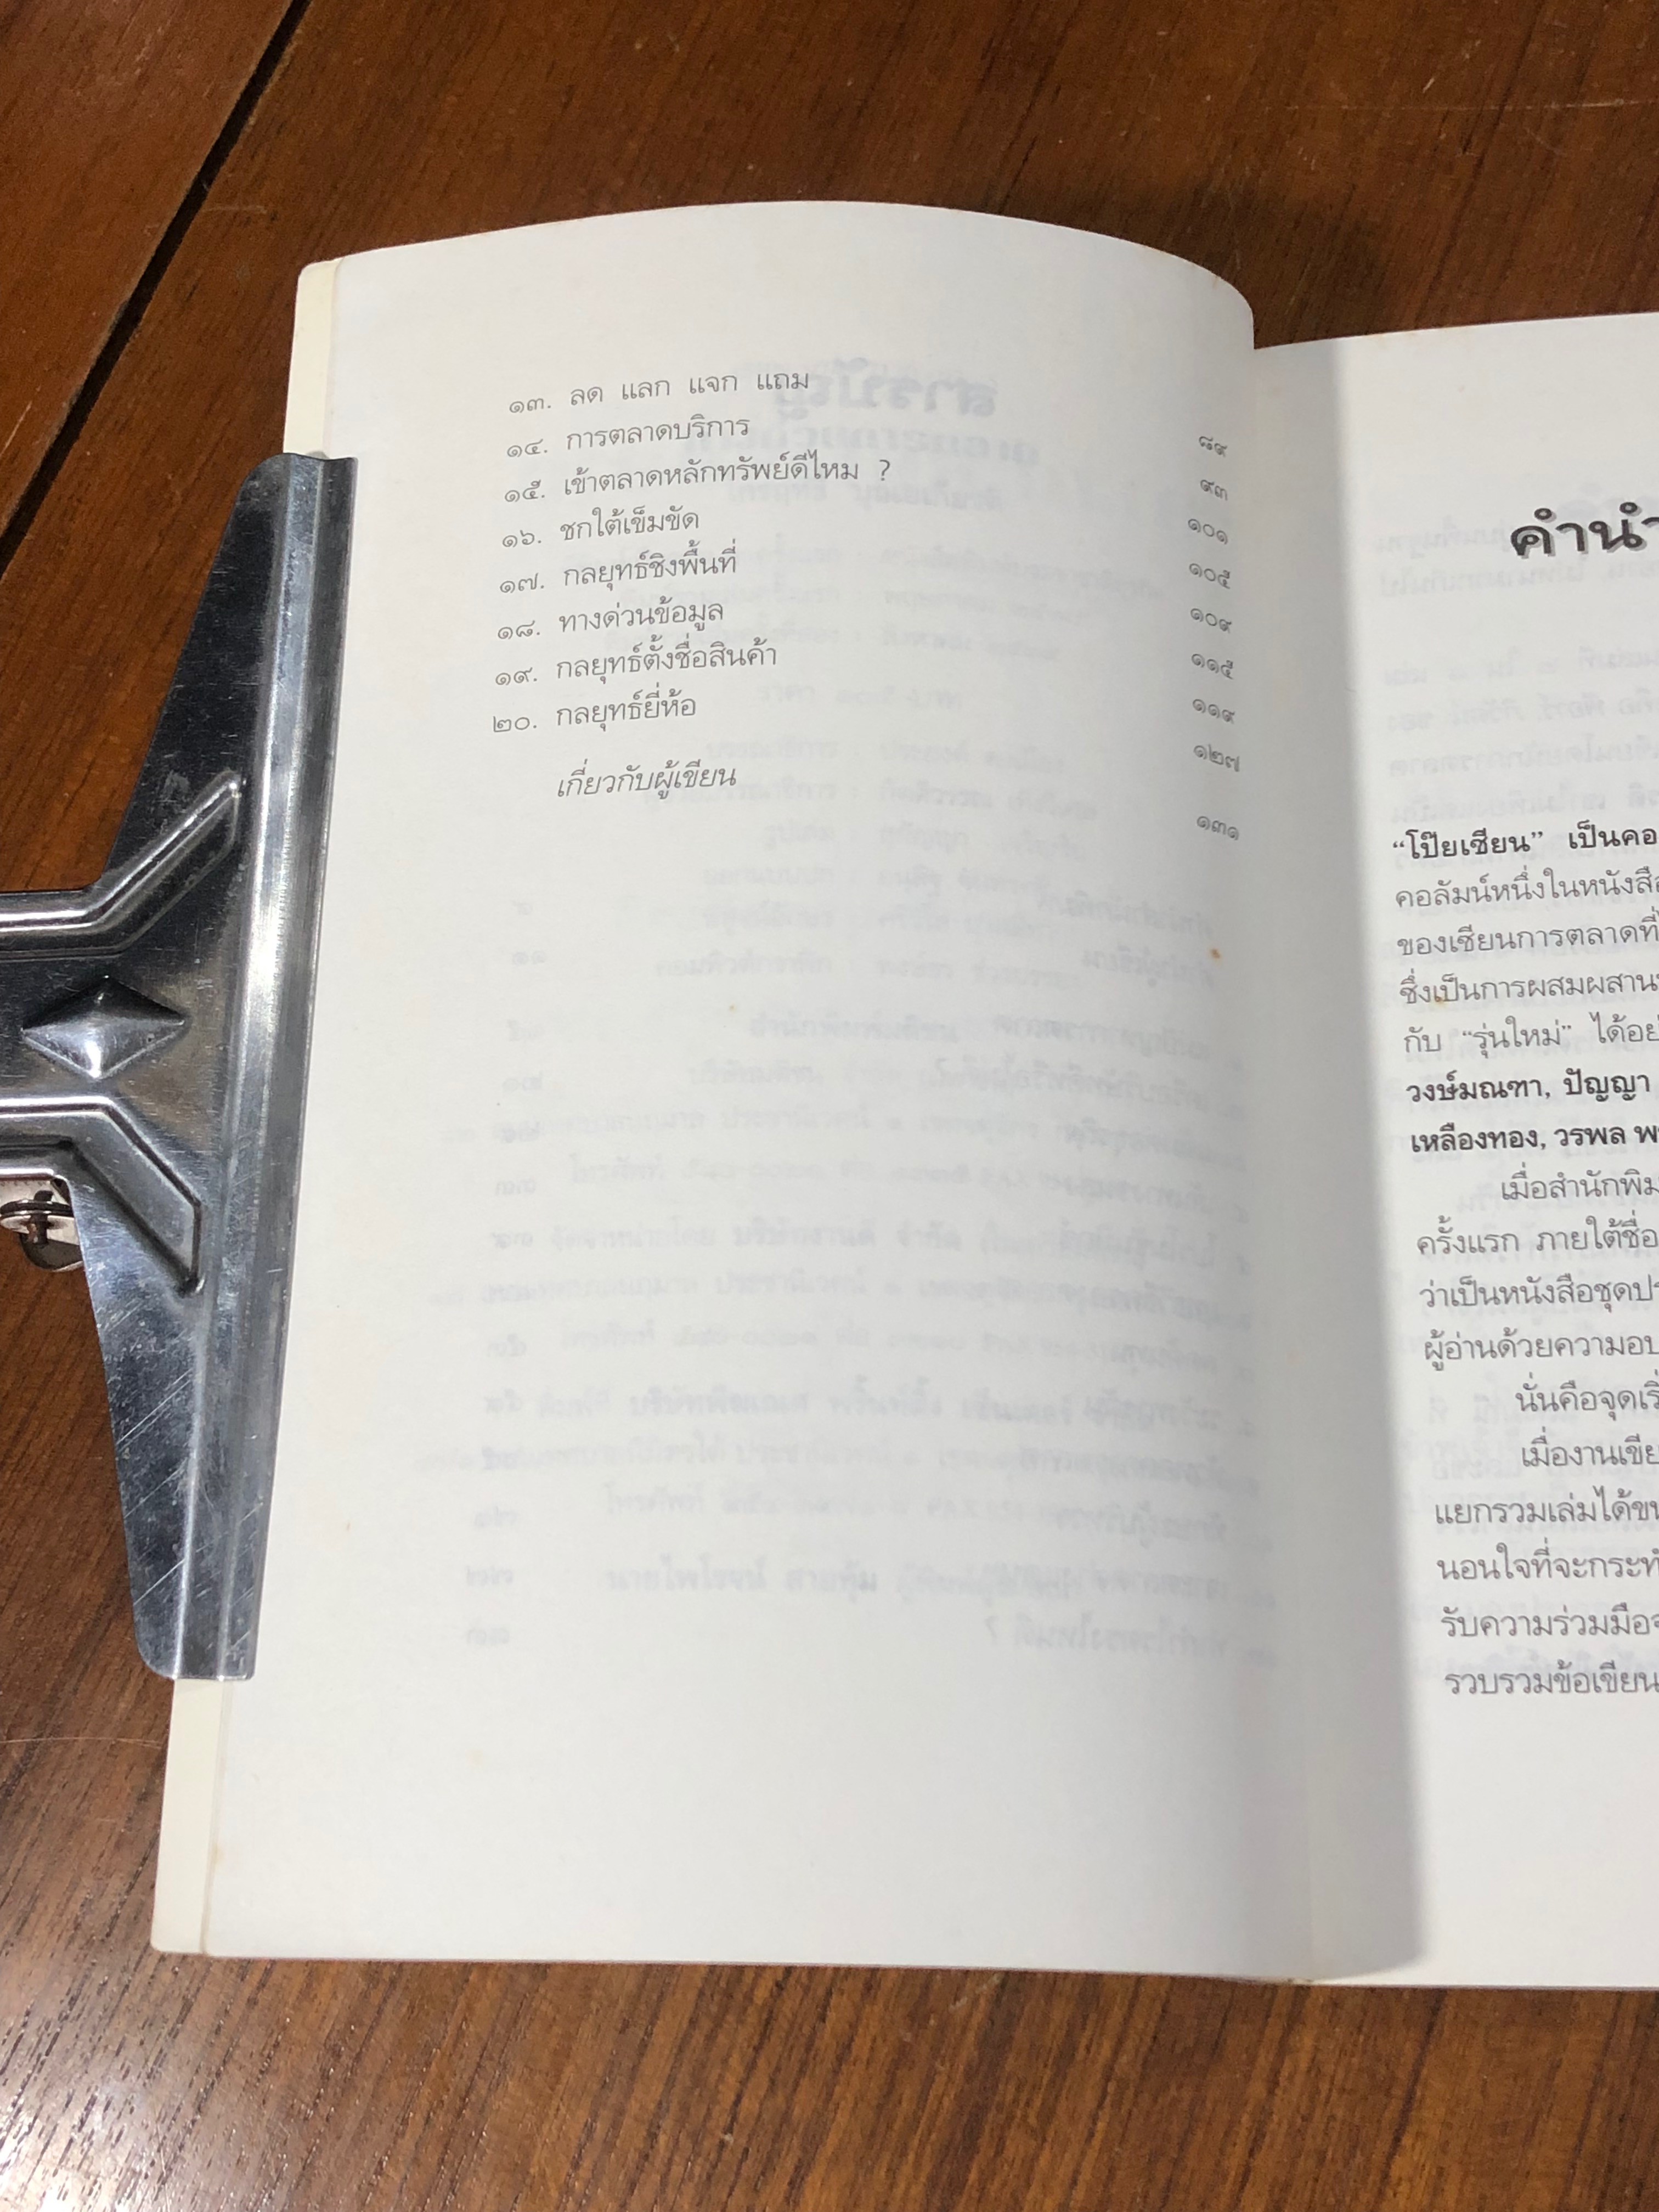 ๑๓. ลด แลก แจก แถม ๘๙
๑๔. การตลาดบริการ ๙๓
๑๕. เข้าตลาดหลักทรัพย์ดีไหม ? ๑๐๑
๑๖. ชกใต้เข็มขัด ๑๐๕
๑๗. กลยุทธ์ชิงพื้นที่ ๑๐๙
๑๘. ทางด่วนข้อมูล ๑๑๕
๑๙. กลยุทธ์ตั้งชื่อสินค้า ๑๑๙
๒๐. กลยุทธ์ยี่ห้อ ๑๒๗
เกี่ยวกับผู้เขียน ๑๓๑
คำนำ
“โป๊ยเซียน” เป็นคอ
คอลัมน์หนึ่งในหนังสือ
ของเซียนการตลาดที่
ซึ่งเป็นการผสมผสาน
กับ “รุ่นใหม่” ได้อย่
วงษ์มณฑา, ปัญญา
เหลืองทอง, วรพล พ
เมื่อสำนักพิม
ครั้งแรก ภายใต้ชื่อ
ว่าเป็นหนังสือชุดปร
ผู้อ่านด้วยความอบ
นั่นคือจุดเริ่
เมื่องานเขีย
แยกรวมเล่มได้ขน
นอนใจที่จะกระทำ
รับความร่วมมือจ
รวบรวมข้อเขียน